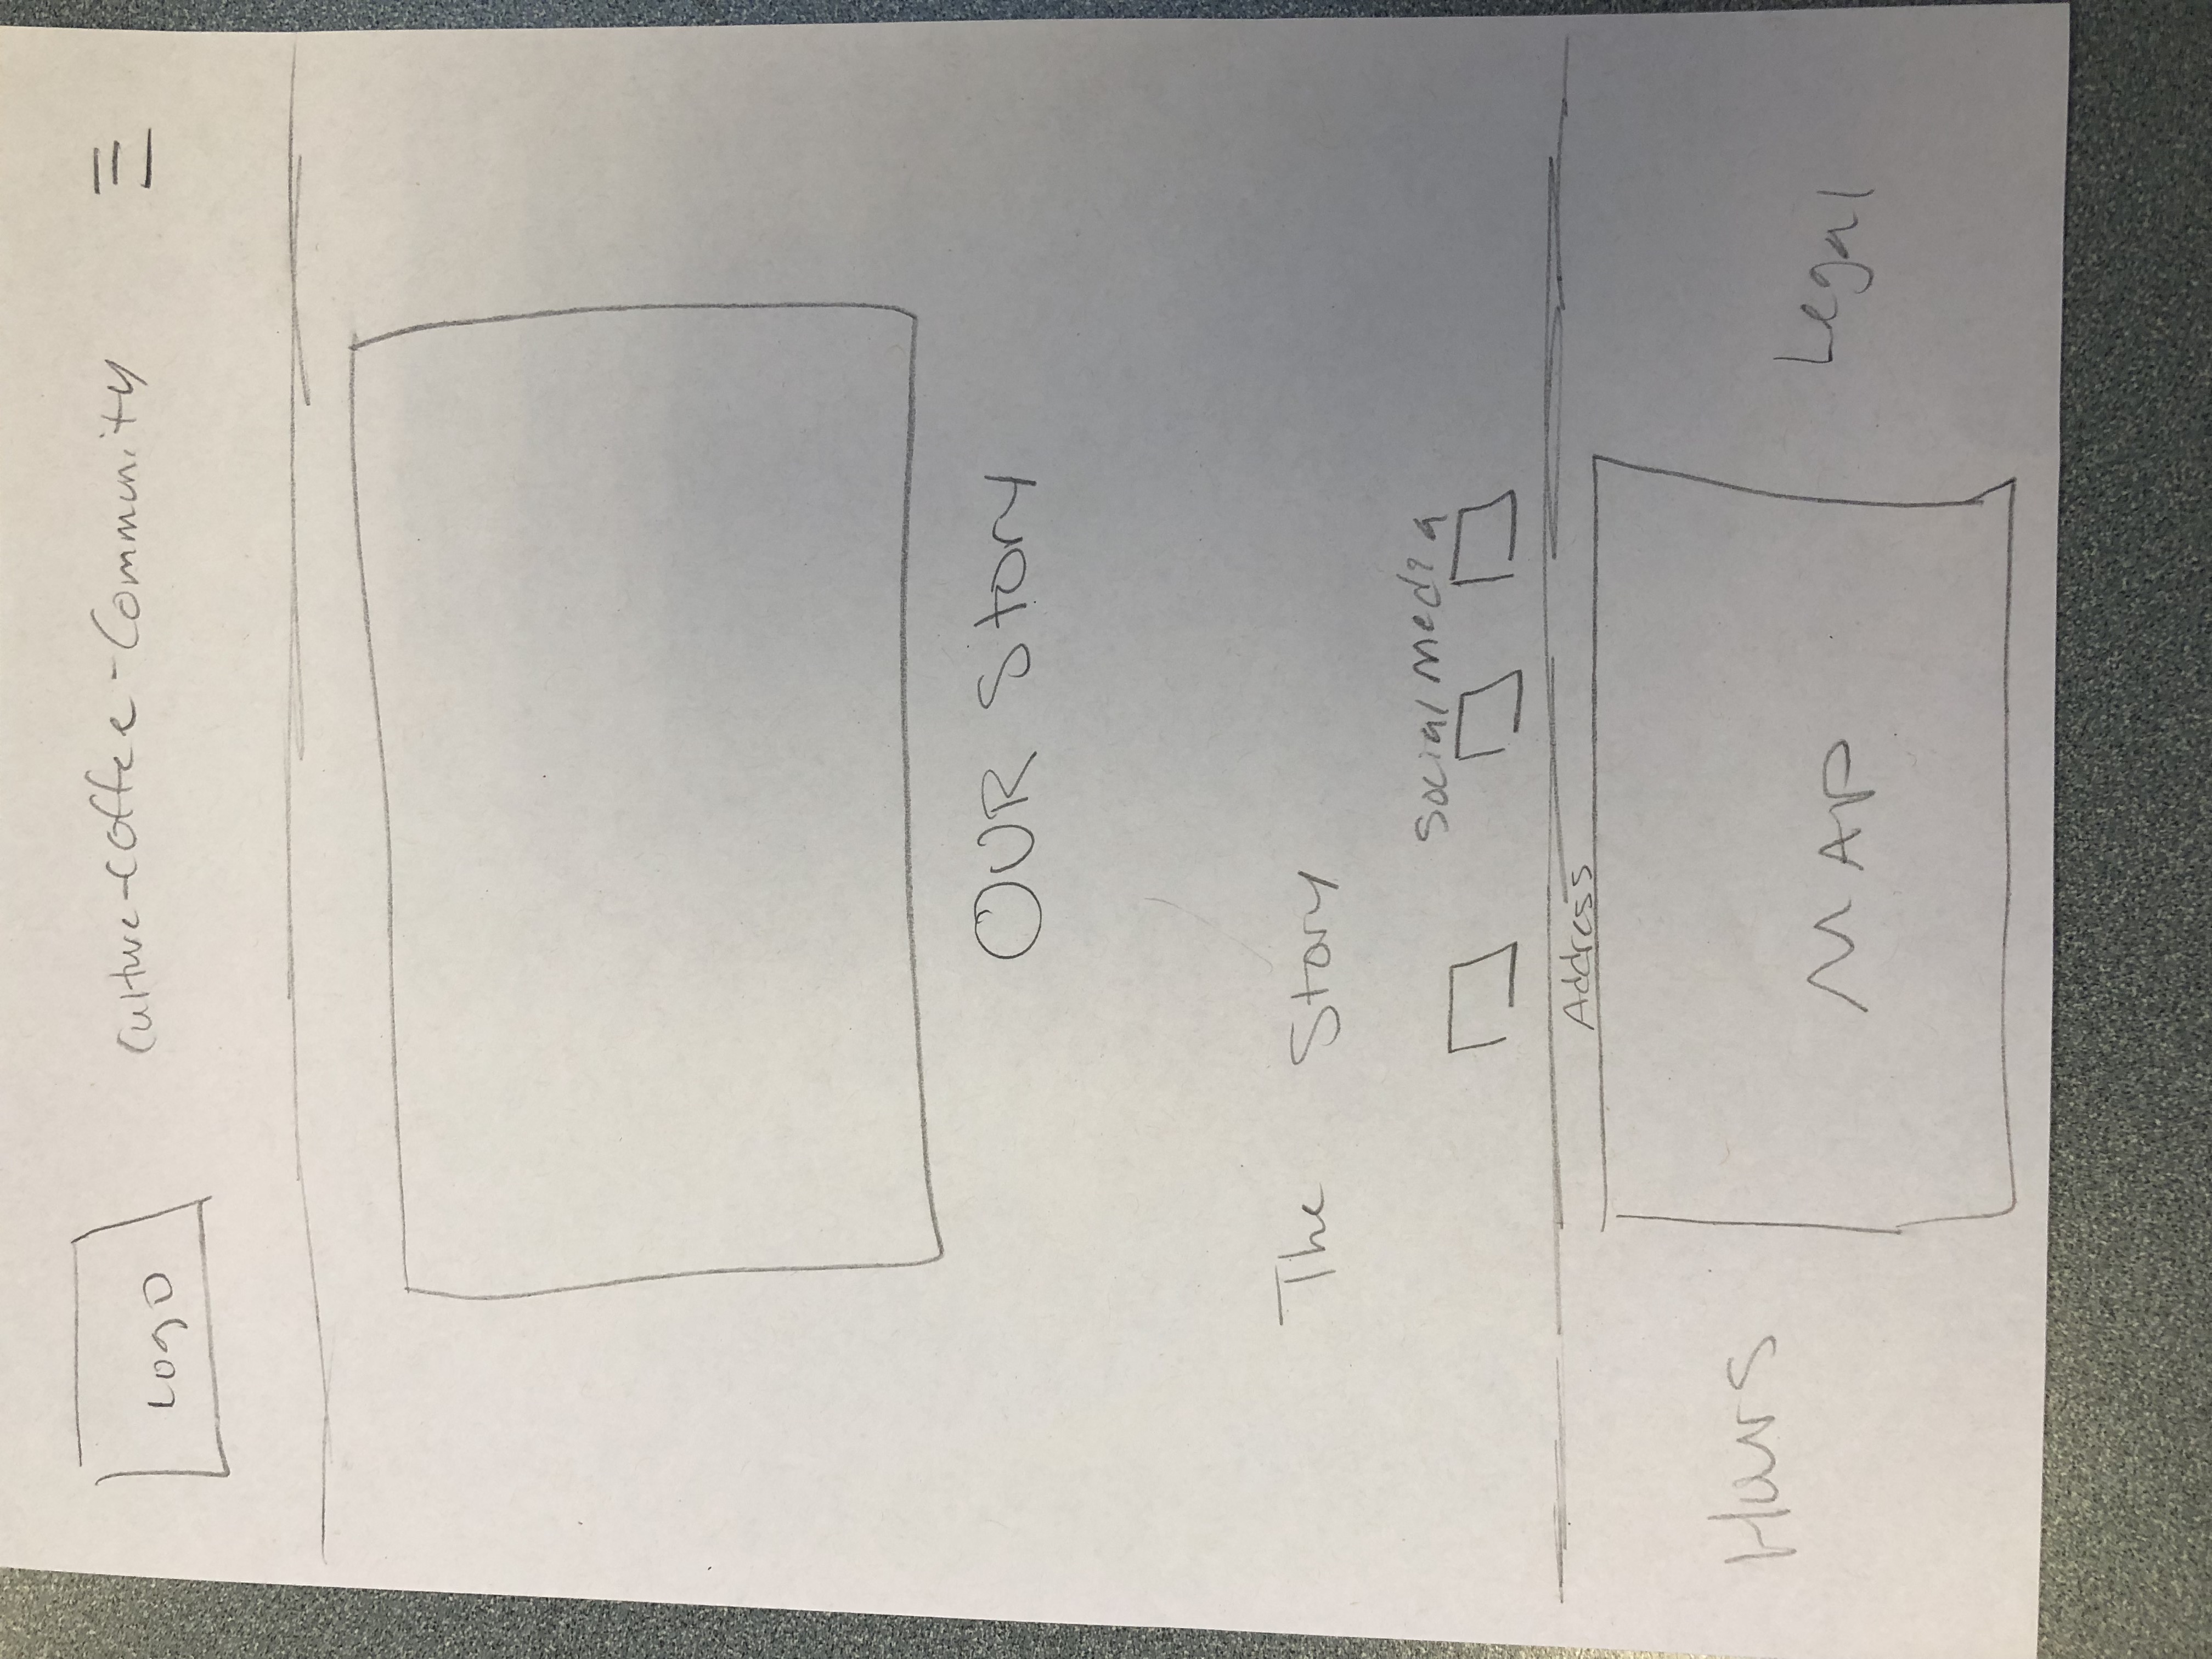 Logo
Culture-Coffee-Community
OUR Story
The Story
Social Media
Address
Hours
MAP
Legal